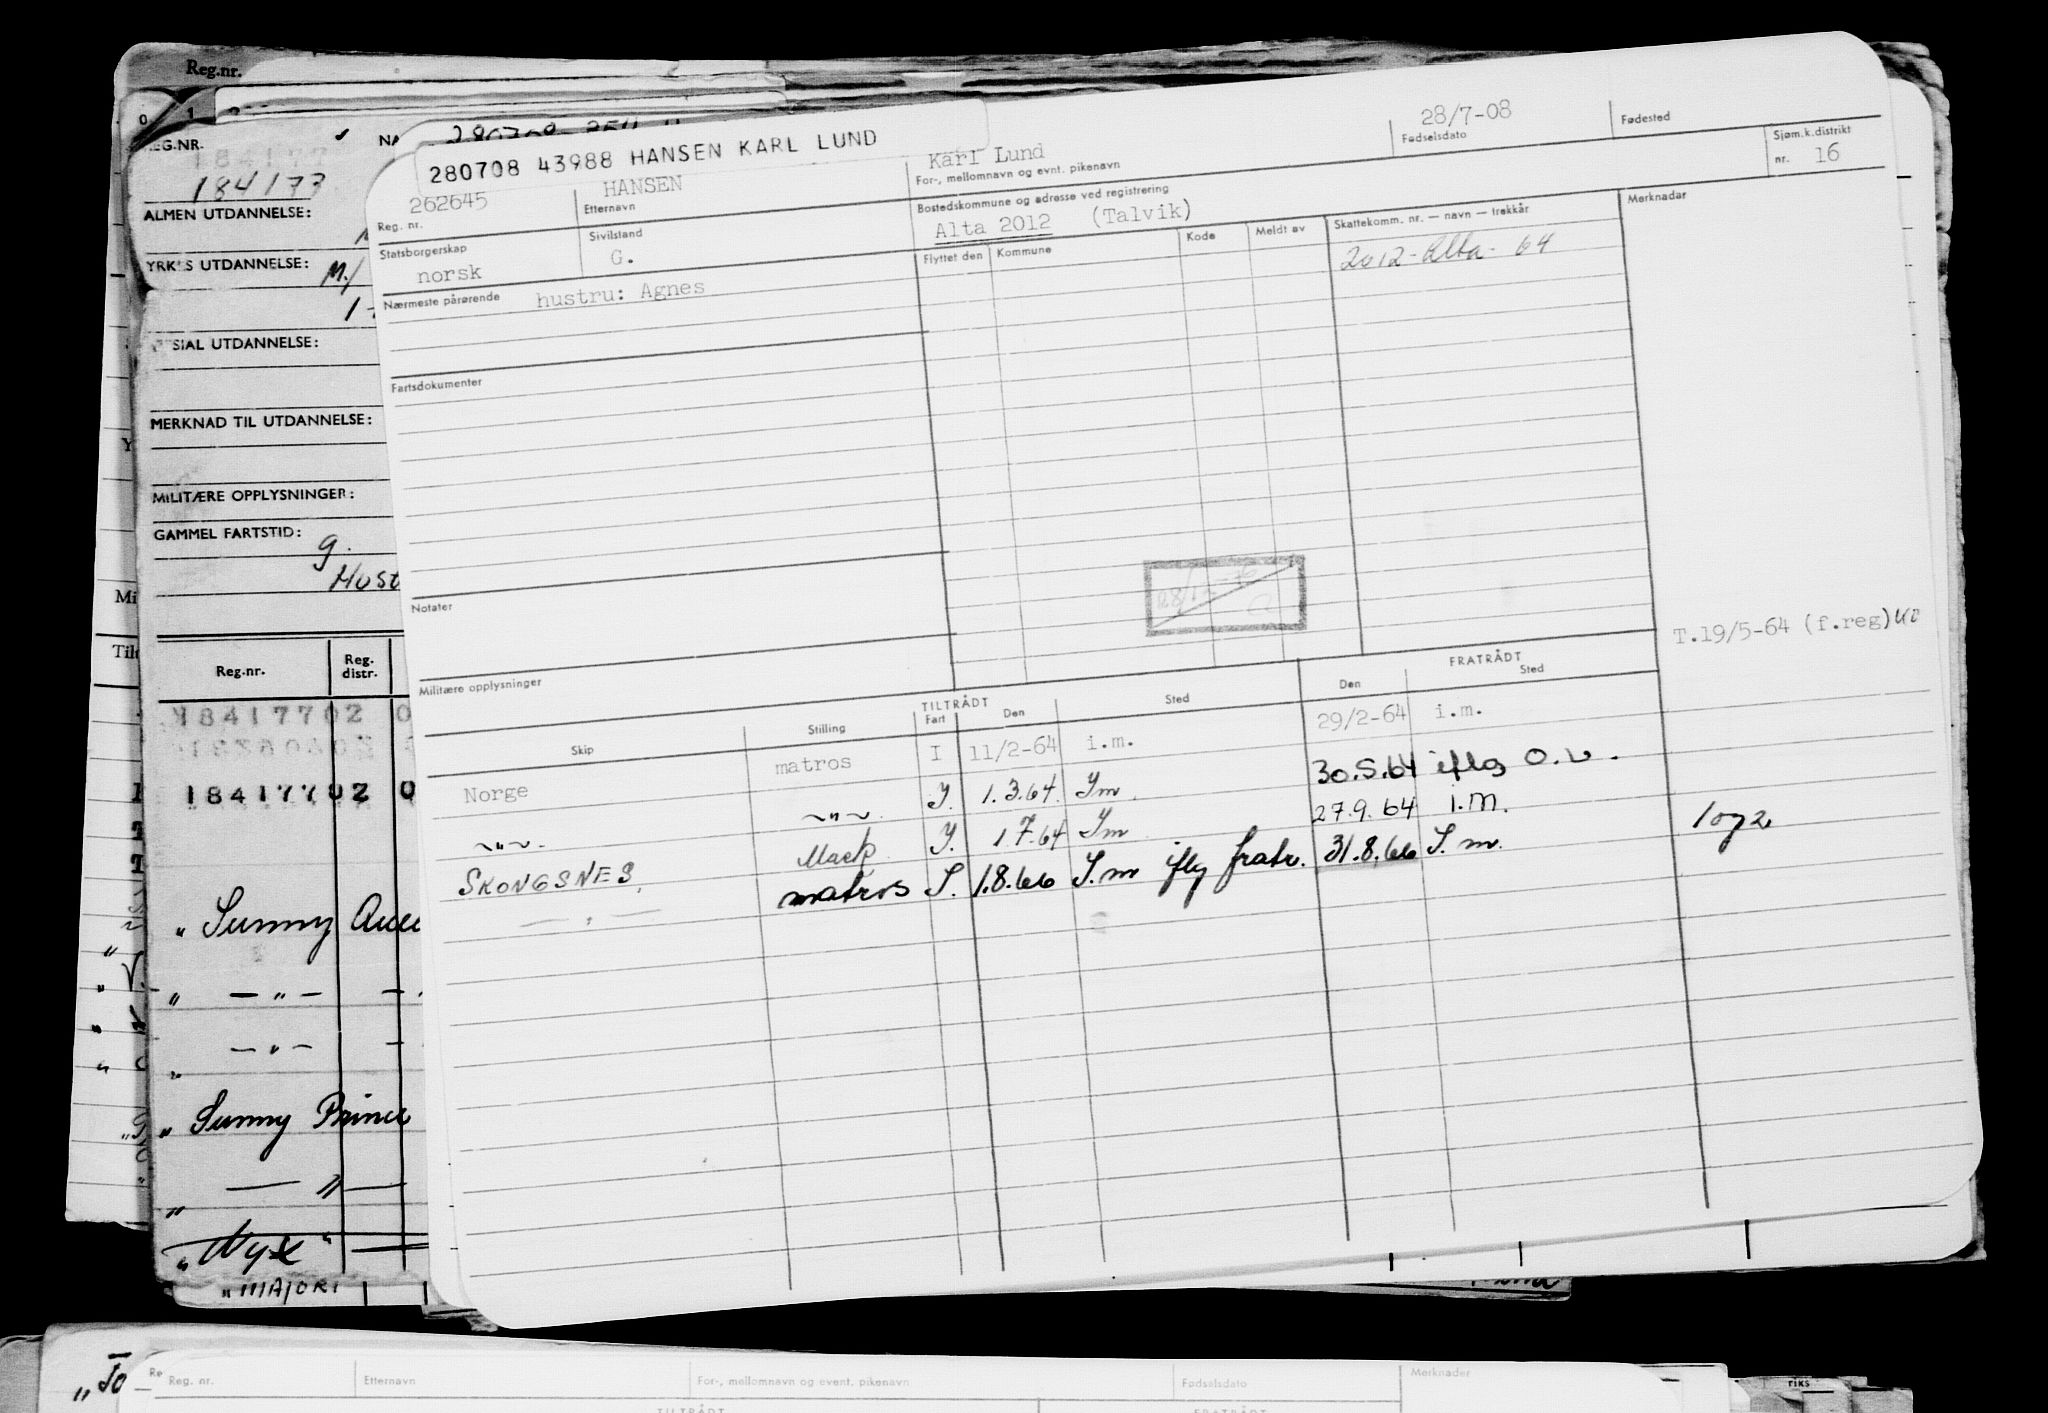 Reg.nr.
REG.NR.
184177
184173
ALMEN UTDANNELSE:
YRKES UTDANNELSE:
M/
SIAL UTDANNELSE:
MERKNAD TIL UTDANNELSE:
MILITÆRE OPPLYSNINGER:
GAMMEL FARTSTID:
g.
Reg.nr.
Reg. distr.
18417702 0
18417702 0
" Sunny
" — " —
" — " —
" Sunny Prince
" — " —
" Nyx "
" MAJORI
280708 43988 HANSEN KARL LUND
262645
Reg. nr.
HANSEN
Etternavn
Karl Lund
For-, mellomnavn og evnt. pikenavn
28/7-08
Fødselsdato
Fødested
Sjøm.k.distrikt
nr. 16
Statsborgerskap
norsk
Sivilstand
G.
Bostedskommune og adresse ved registrering
Alta 2012 (Talvik)
Flyttet den
Kommune
Kode
Meldt av
Skattekomm. nr. — navn — trekkår
2012 - Alta - 64
Merknader
Nærmeste pårørende
hustru: Agnes
Fartsdokumenter
Notater
Militære opplysninger
T.19/5-64 (f.reg)
TILTRÅDT
FRATRÅDT
Skip
Stilling
Fart
Den
Sted
Den
Sted
Norge matros I 11/2-64 i.m. 29/2-64 i.m.
—"— —"— I. 1.3.64 Im 30.5.64 iflg o.v.
SKONGSNES, I. 1.7.64 Im 27.9.64 i.m.
— " — matros S. 1.8.66 S.m iflg fratr. 31.8.66 S.m. 1 og 2
Reg. nr.
Etternavn
For-, mellomnavn og event. pikenavn
Fødselsdato
Merknader
TILTRÅDT
FRATRÅDT